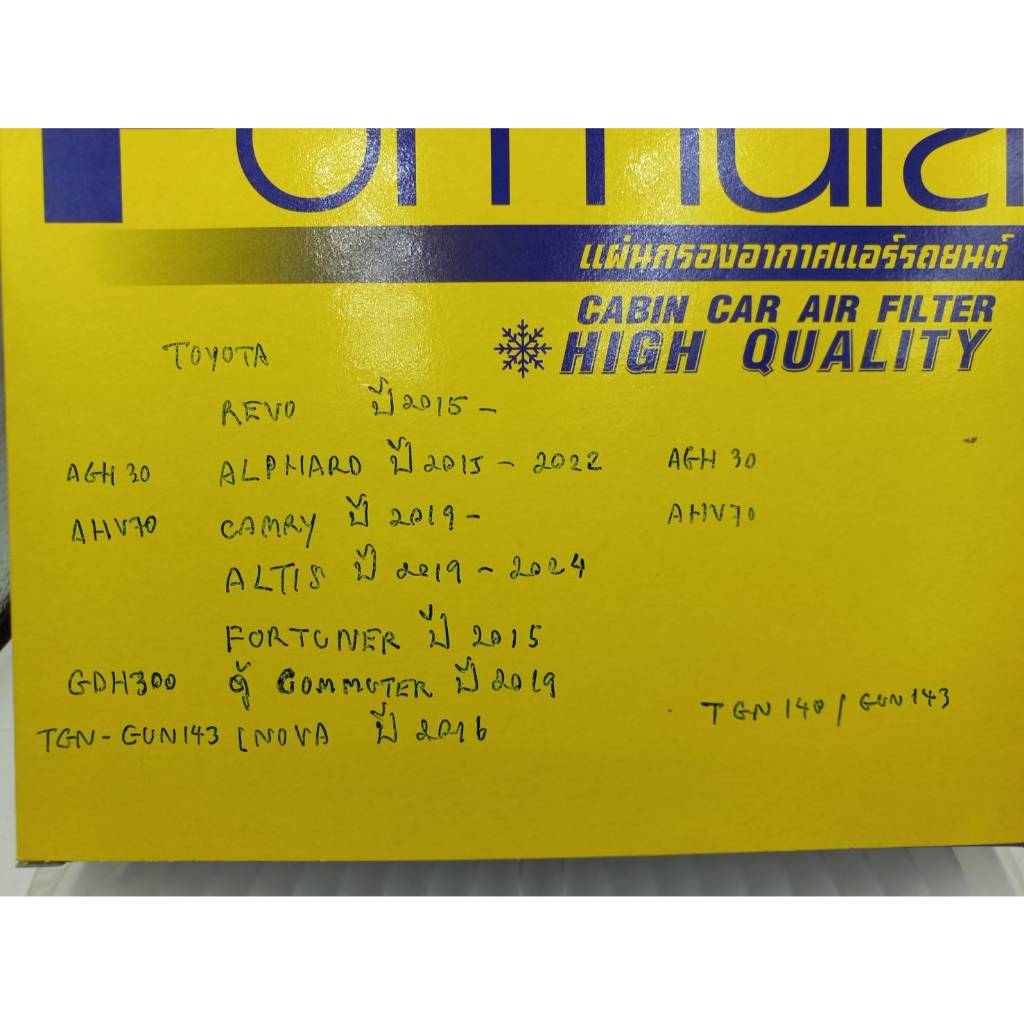 Formula
แผ่นกรองอากาศแอร์รถยนต์
CABIN CAR AIR FILTER
HIGH QUALITY
TOYOTA
REVO ปี 2015 -
AGH 30 ALPHARD ปี 2015 - 2022 AGH 30
AHV70 CAMRY ปี 2019 - AHV70
ALTIS ปี 2019 - 2024
FORTUNER ปี 2015
GDH300 ตู้ COMMUTER ปี 2019
TGN - GUN143 INOVA ปี 2016 TGN 140 / GUN 143